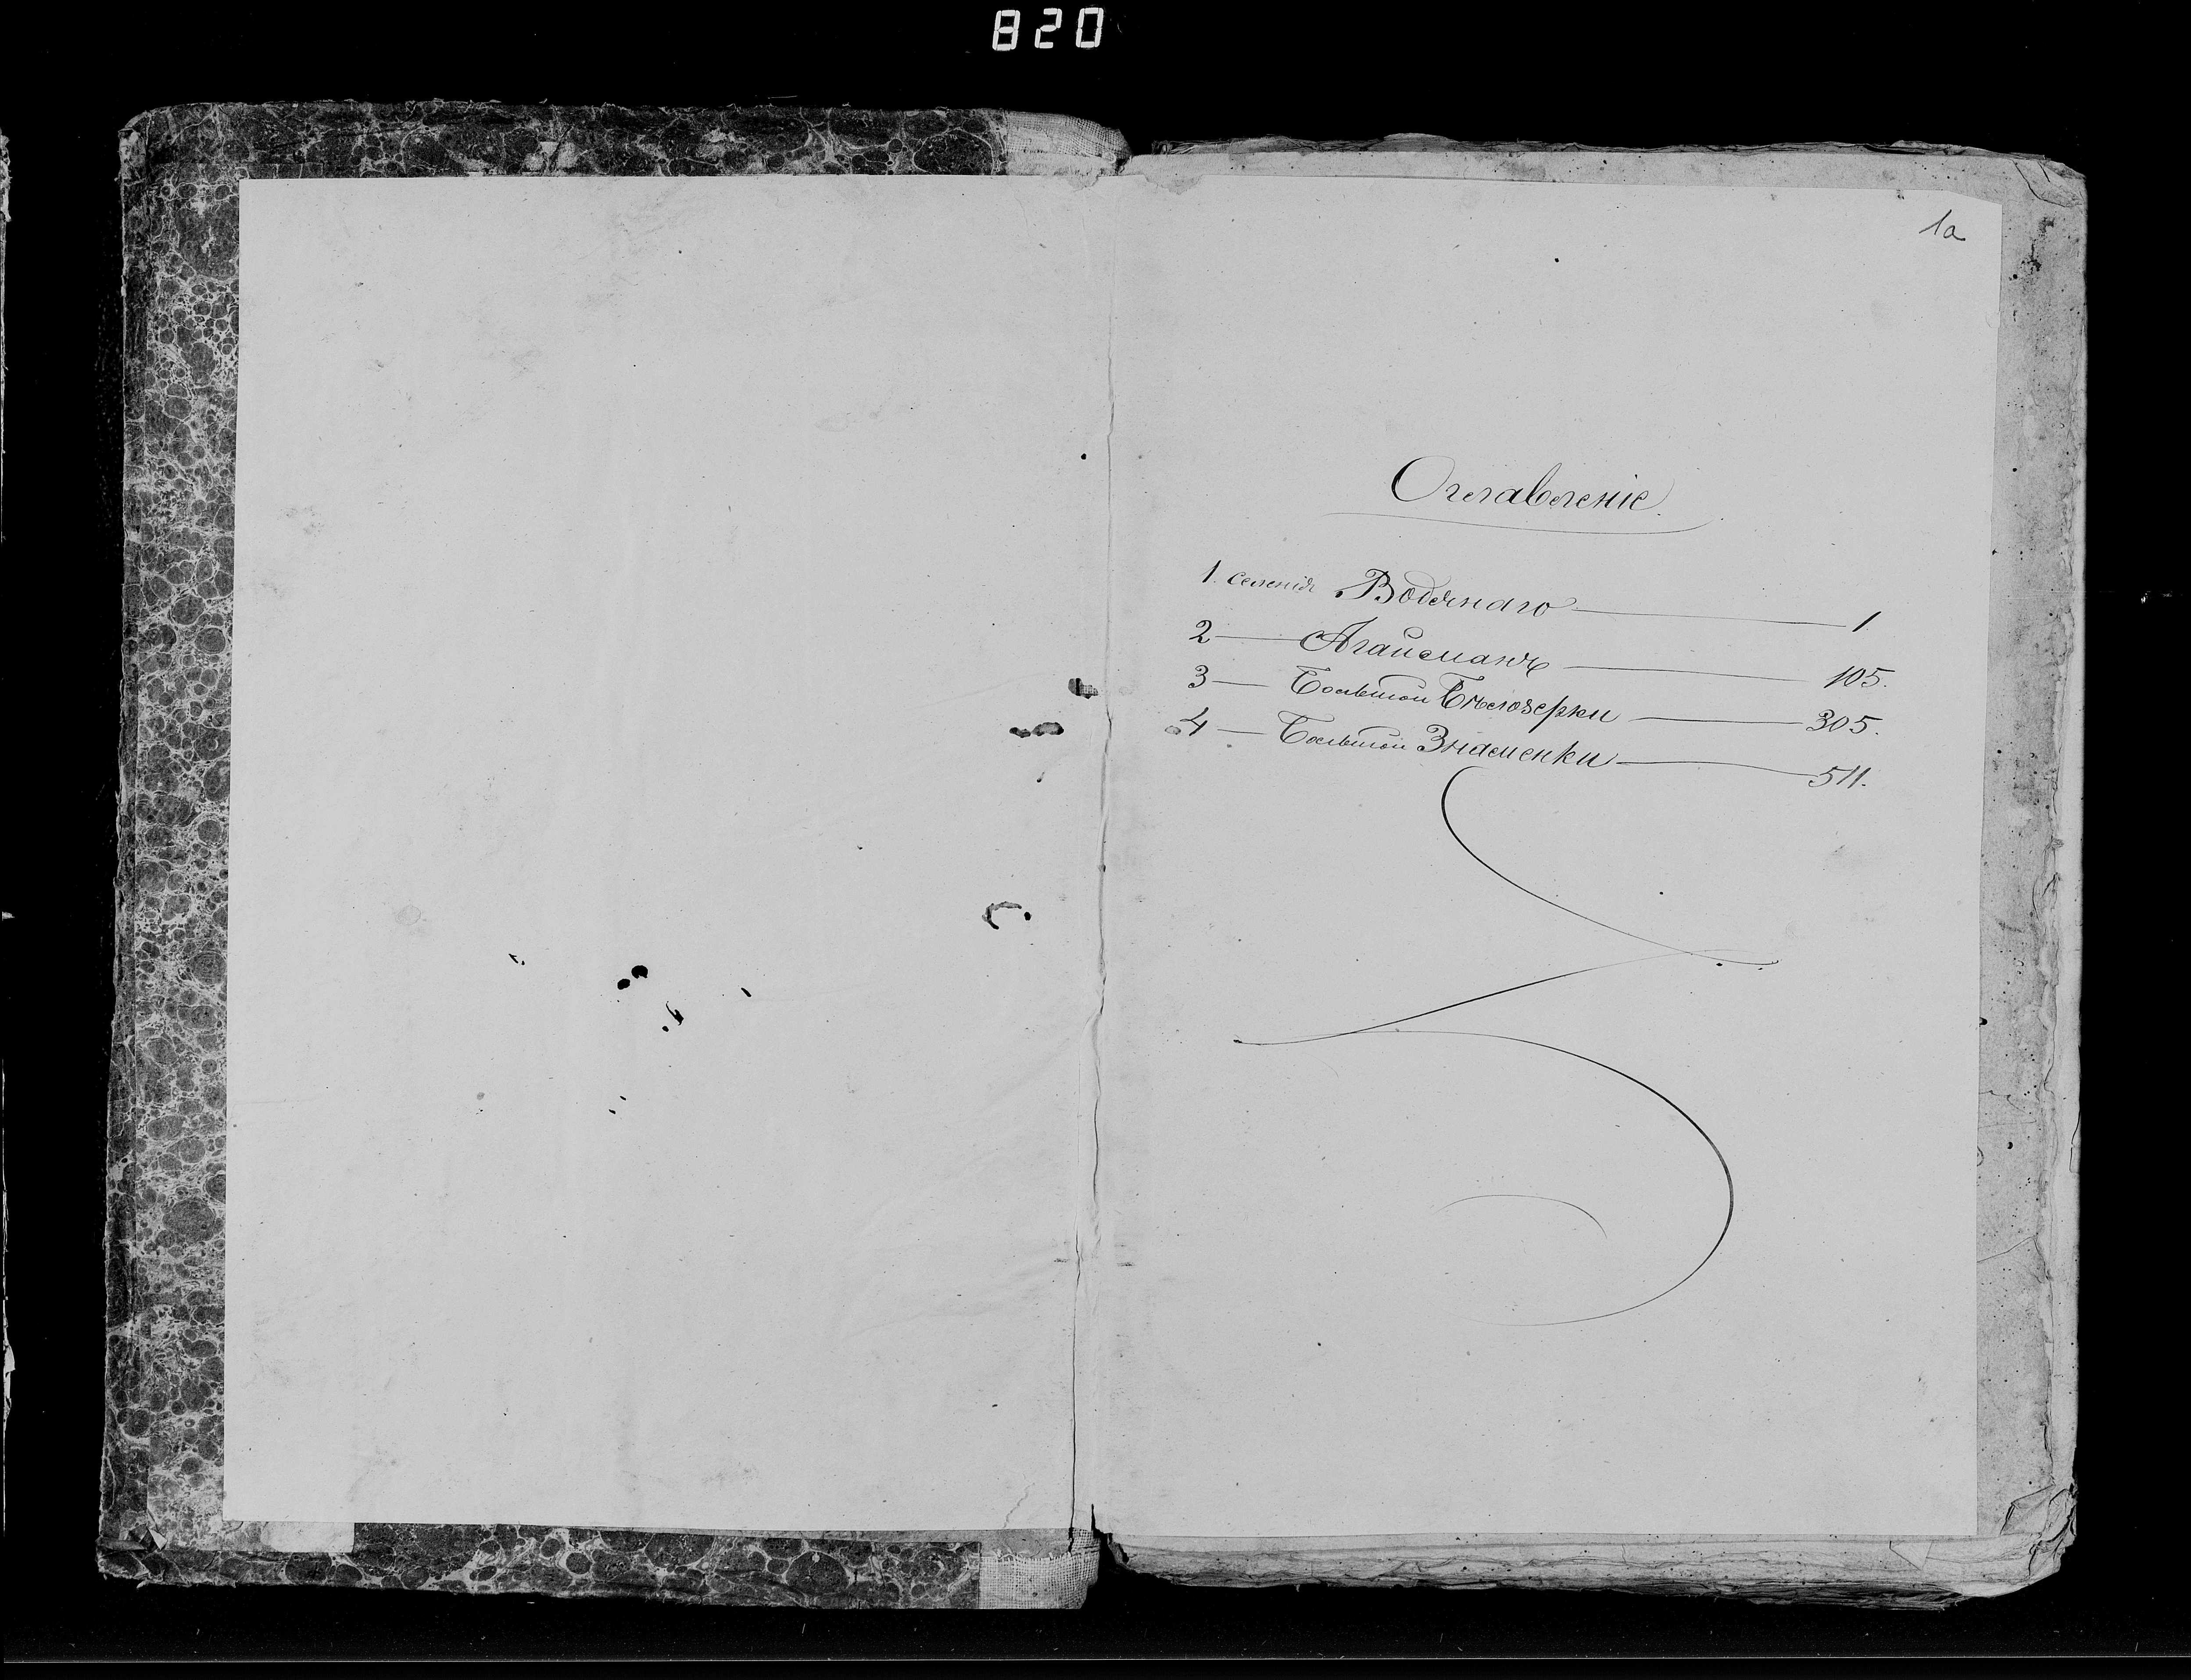 820
1а
Оглавленіе.
1. селенія Водянаго — 1.
2 — Агайманъ — 105.
3 — Большой Бѣлозерки — 305.
4 — Большой Знаменки — 511.